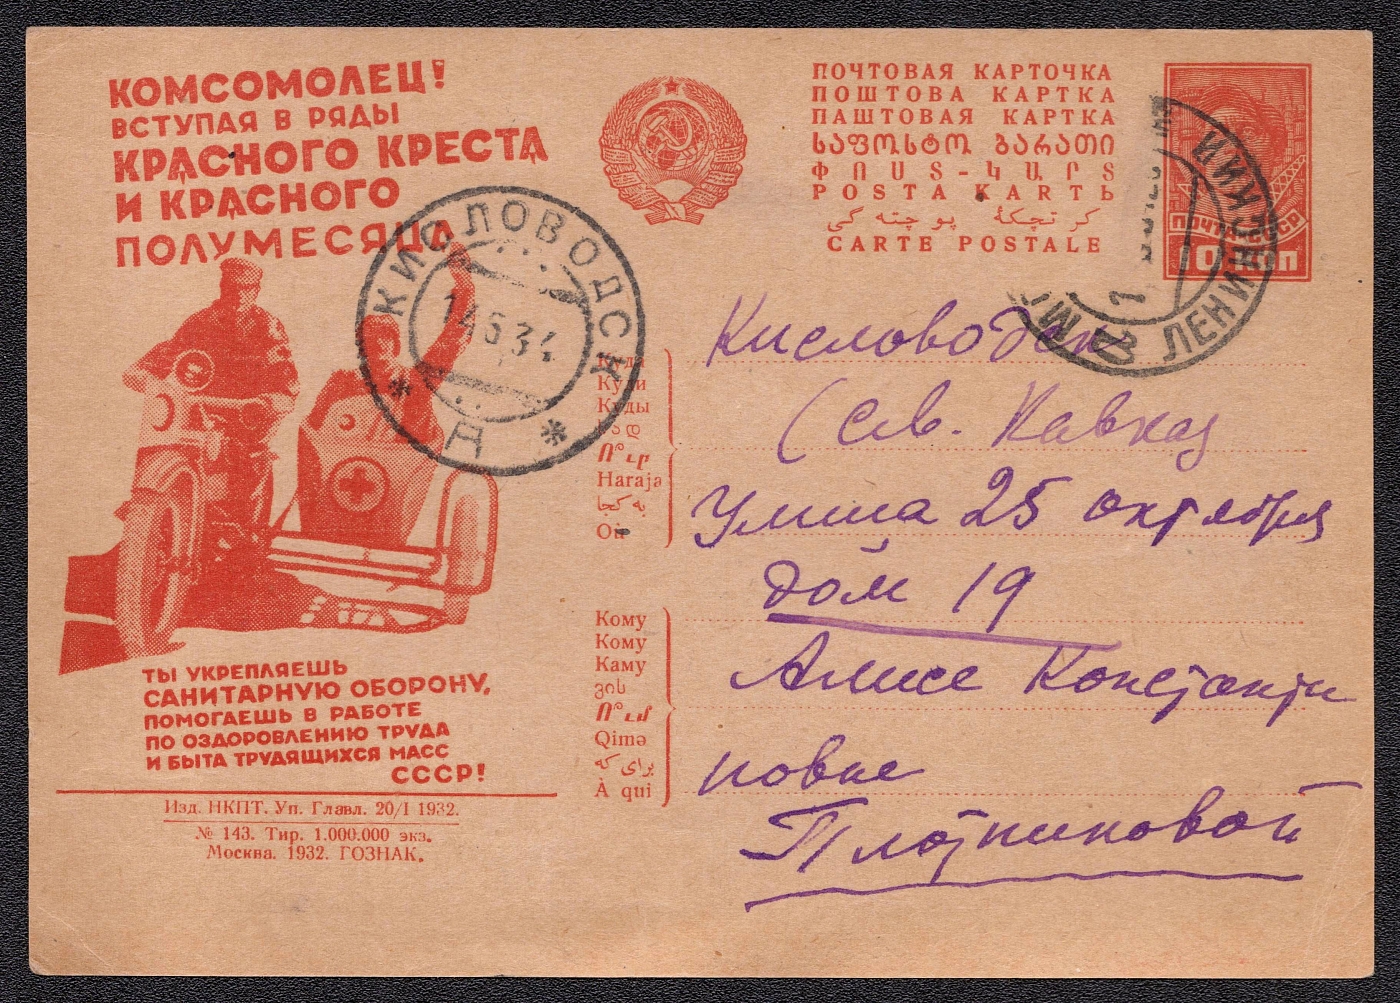 КОМСОМОЛЕЦ!
ВСТУПАЯ В РЯДЫ
КРАСНОГО КРЕСТА
И КРАСНОГО
ПОЛУМЕСЯЦА
ТЫ УКРЕПЛЯЕШЬ
САНИТАРНУЮ ОБОРОНУ,
ПОМОГАЕШЬ В РАБОТЕ
ПО ОЗДОРОВЛЕНИЮ ТРУДА
И БЫТА ТРУДЯЩИХСЯ МАСС
СССР!
Изд. НКПТ. Уп. Главл. 20/I 1932.
№ 143. Тир. 1.000.000 экз.
Москва. 1932. ГОЗНАК.
КИСЛОВОДСК
14.5.34
ПОЧТОВАЯ КАРТОЧКА
ПОШТОВА КАРТКА
ПАШТОВАЯ КАРТКА
ᲡᲐᲤᲝᲡᲢᲝ ᲑᲐᲠᲐᲗᲘ
ՓՈՍՏ-ԿԱՐՏ
POSTA KARTЬ
CARTE POSTALE
ПОЧТА СССР
10 КОП
ЛЕНИНСКИЙ
Куда
Куди
Куды
სად
Ո՞ւր
Haraja
Où
Кисловодск
(Сев. Кавказ
Улица 25 октября
дом 19
Кому
Кому
Каму
ვის
Ո՞ւմ
Qimə
برای که
À qui
Алисе Константи
новне
Плотниковой